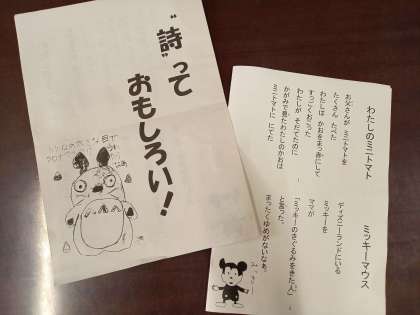 "詩"って
おもしろい!
わたしのミニトマト
お父さんが ミニトマトを
たくさん たべた
わたしは かおをまっ赤にして
すっごくおこった
わたしが そだてたのに
かがみで見たわたしのかおは
ミニトマトに にてた
ミッキーマウス
ディズニーランドにいる
ミッキーを
ママが
「ミッキーのきぐるみをきた人」
と言った。
まったくゆめがないなぁ。